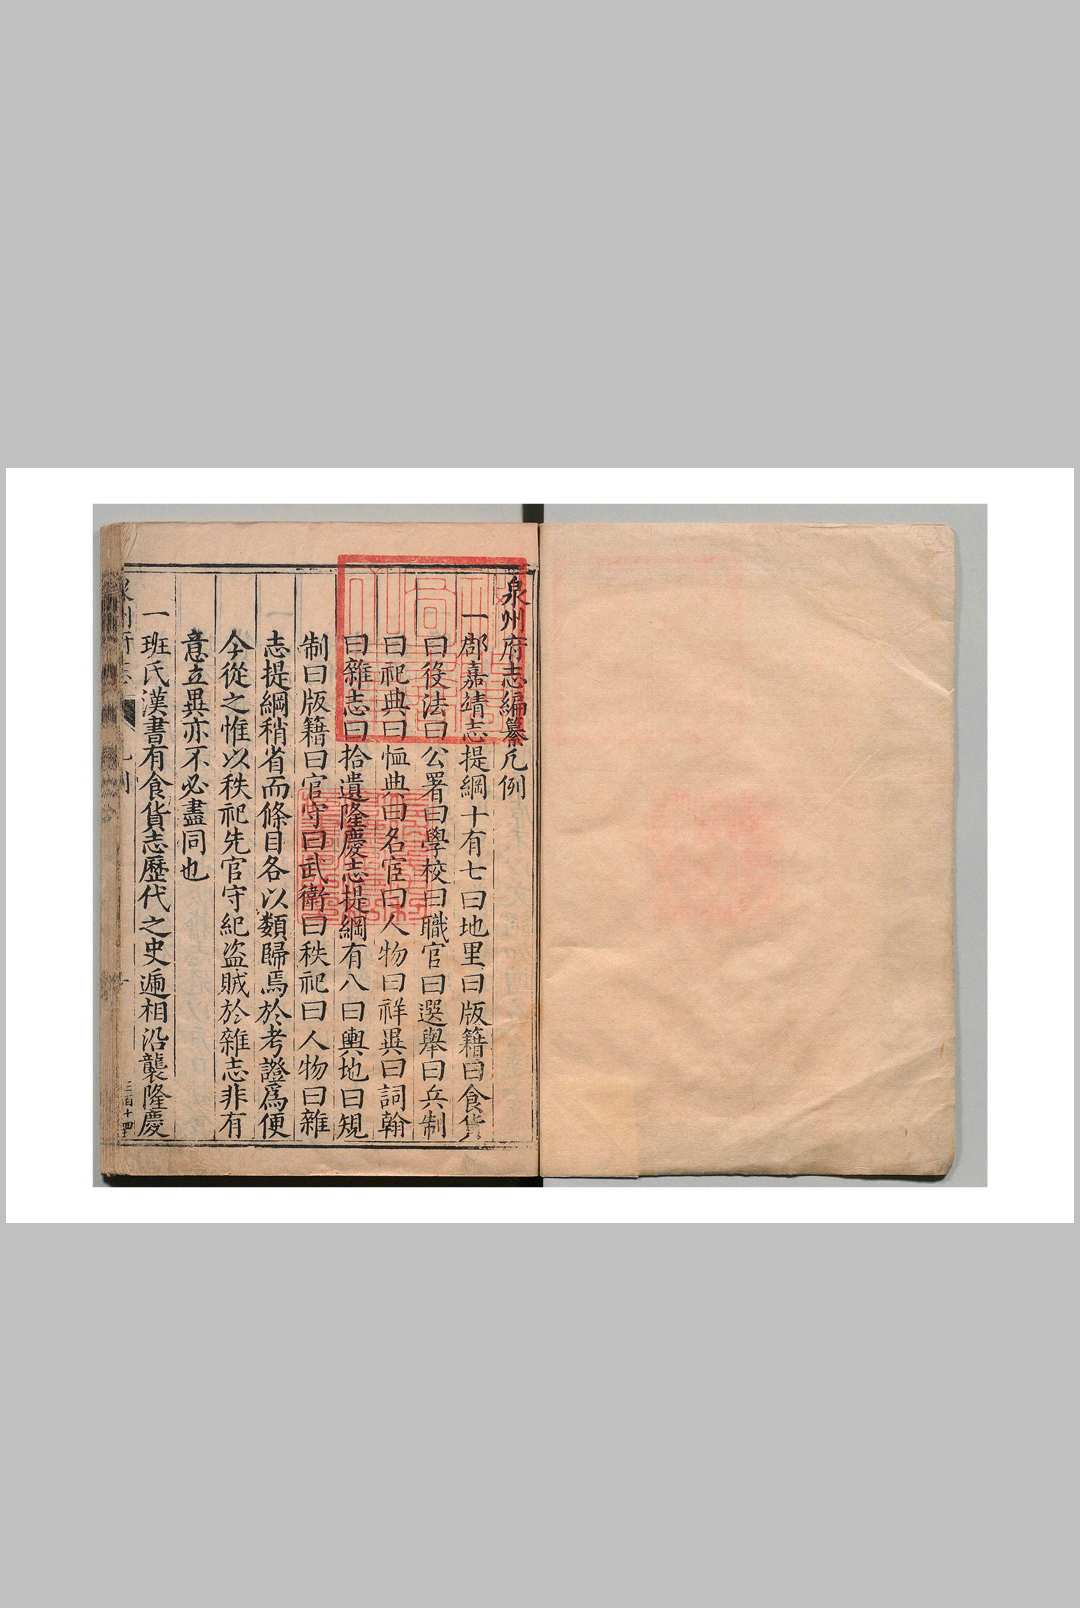 泉州府志編纂凡例
一郡嘉靖志提綱十有七曰地里曰版籍曰食貨
曰役法曰公署曰學校曰職官曰選舉曰兵制
曰祀典曰恤典曰名宦曰人物曰祥異曰詞翰
曰雜志曰拾遺隆慶志提綱有八曰輿地曰規
制曰版籍曰官守曰武衛曰秩祀曰人物曰雜
志提綱稍省而條目各以類歸焉於考證爲便
今從之惟以秩祀先官守紀盜賊於雜志非有
意立異亦不必盡同也
一班氏漢書有食貨志歷代之史遞相沿襲隆慶
泉州府志 凡例 一 三百十四